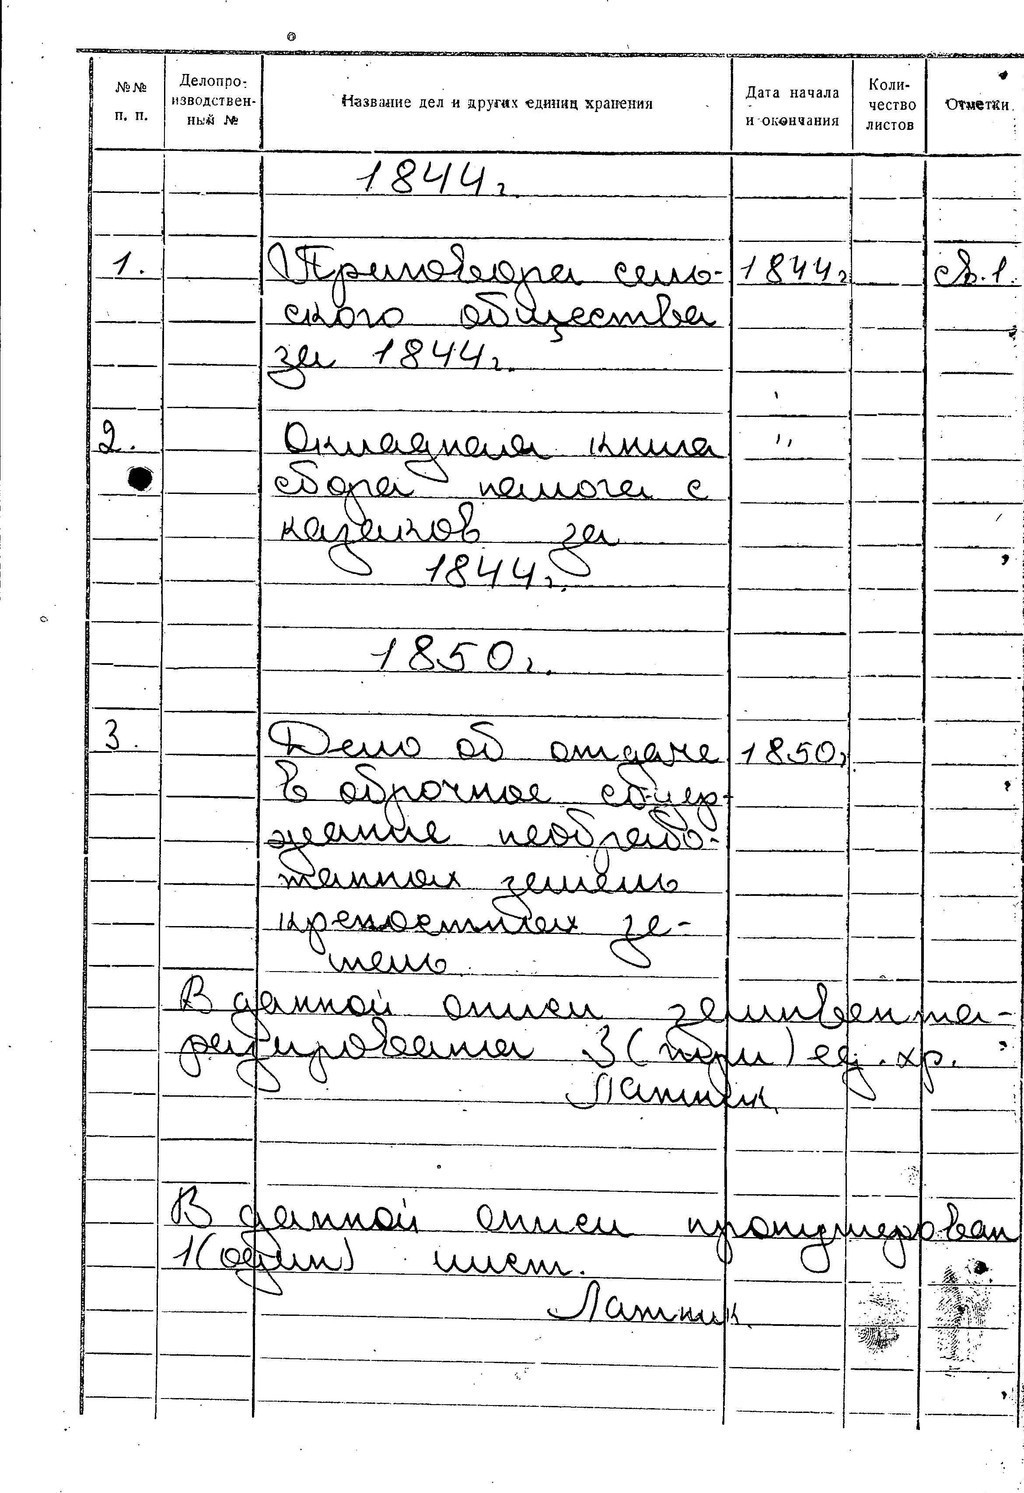 №№ п. п. Делопроизводственный № Название дел и других единиц хранения Дата начала и окончания Количество листов Отметки
1844 г.
1. Приговора сель- 1844 г. св. 1.
ского общества
за 1844 г.
2. Окладная книга "
сбора налога с
казаков за
1844 г.
1850 г.
3. Дело об отдаче 1850 г.
в оброчное содер-
жание необрабо-
танных земель
крепостных зе-
мель
В данной описи заинвента-
ризирована 3 (три) ед. хр.
Латник
В данной описи пронумерован
1 (один) лист.
Латник